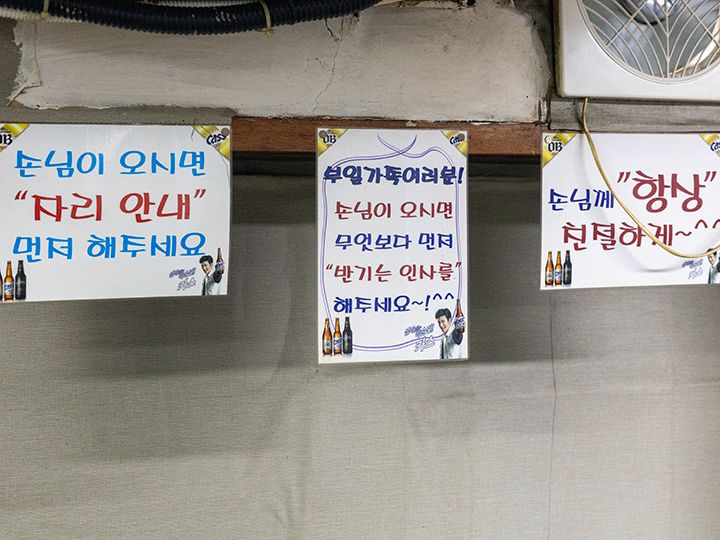 OB
Cass
손님이 오시면
“자리 안내”
먼저 해주세요
카스
OB
Cass
부일가족여러분!
손님이 오시면
무엇보다 먼저
“반기는 인사를”
해주세요~!^^
카스
OB
손님께 "항상"
친절하게~^^